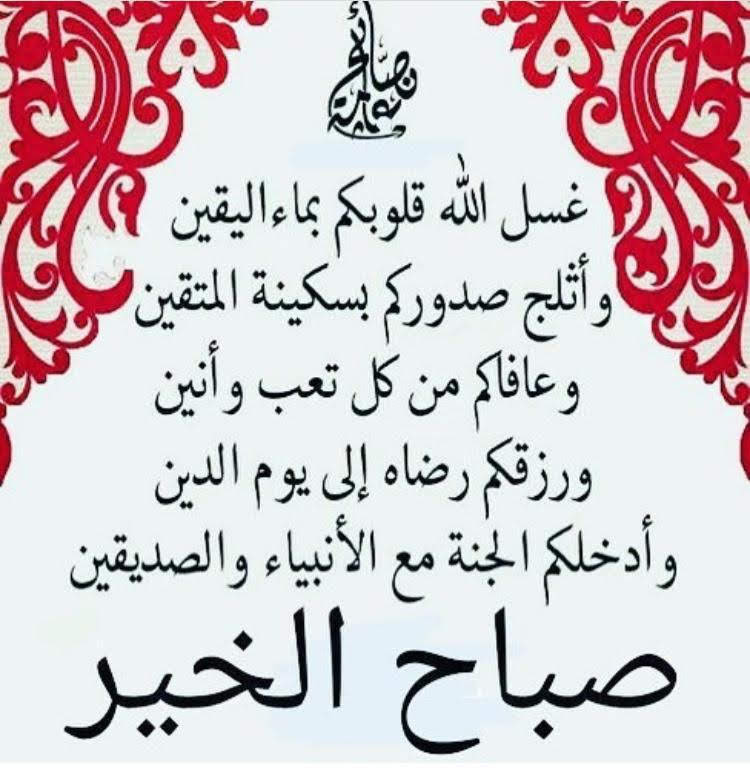 غسل الله قلوبكم بماء اليقين
وأثلج صدوركم بسكينة المتقين
وعافاكم من كل تعب وأنين
ورزقكم رضاه إلى يوم الدين
وأدخلكم الجنة مع الأنبياء والصديقين
صباح الخير